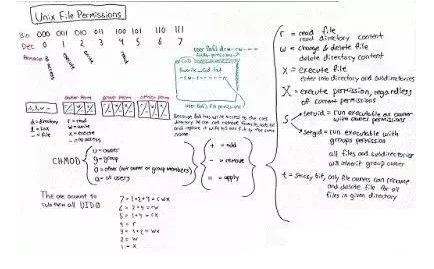 Unix File Permissions
Bin 000 001 010 011 100 101 110 111
Dec 0 1 2 3 4 5 6 7
no access
execute
write
read
owner perm group perm others perm
d = directory
l = link
- = file
r = read
w = write
x = execute
- = no access
CHMOD
u = owner
g = group
o = other (not owner or group members)
a = all users
+ = add
- = remove
= = apply
r = read file
read directory content
w = change & delete file
delete directory content
x = execute file
enter into directory and subdirectories
X = execute permission, regardless
of current permissions
s
setuid = run executable as owner
with owner permissions
setgid = run executable with
groups permission
all files and subdirectories
will inherit group owner
t = sticky bit, only file owners can rename
and delete file for all
files in given directory
The one account to
rule them all UID 0
7 = 1+2+4 = rwx
6 = 2+4 = rw
5 = 1+4 = rx
4 = r
3 = 1+2 = wx
2 = w
1 = x